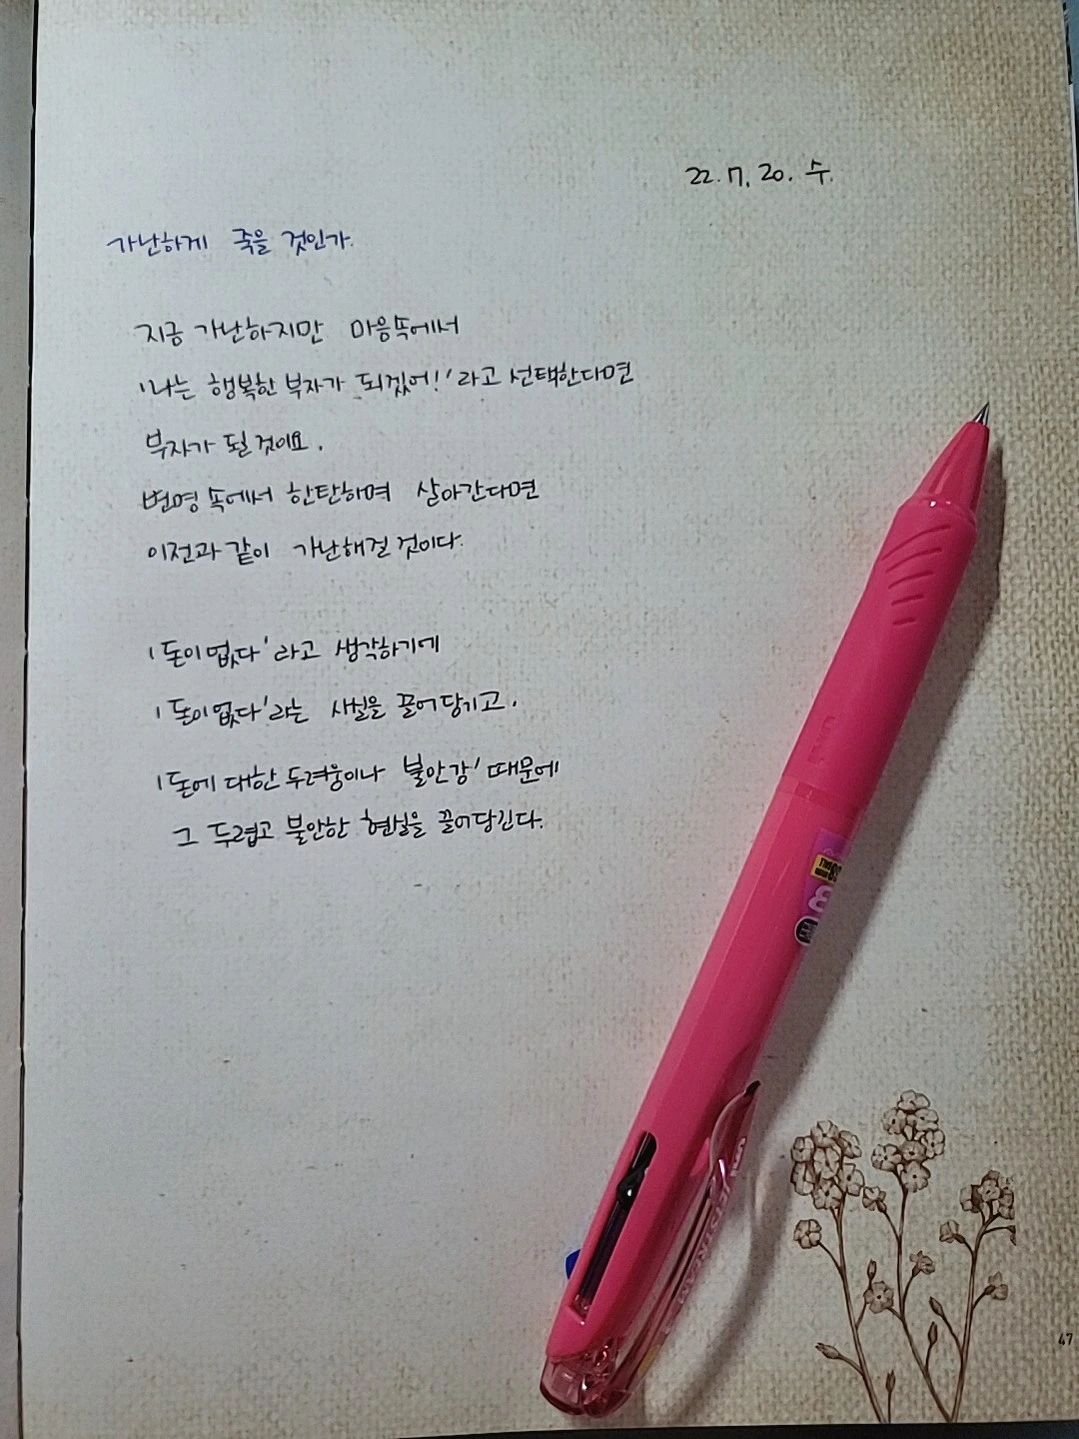 22. 7. 20. 수.
가난하게 죽을 것인가.
지금 가난하지만 마음속에서
'나는 행복한 부자가 되겠어!'라고 선택한다면
부자가 될 것이요.
변명 속에서 한탄하며 살아간다면
이전과 같이 가난해질 것이다.
'돈이 없다'라고 생각하기에
'돈이 없다'라는 사실을 끌어당기고,
'돈에 대한 두려움이나 불안감' 때문에
그 두렵고 불안한 현실을 끌어당긴다.
uni
JETSTREAM
47